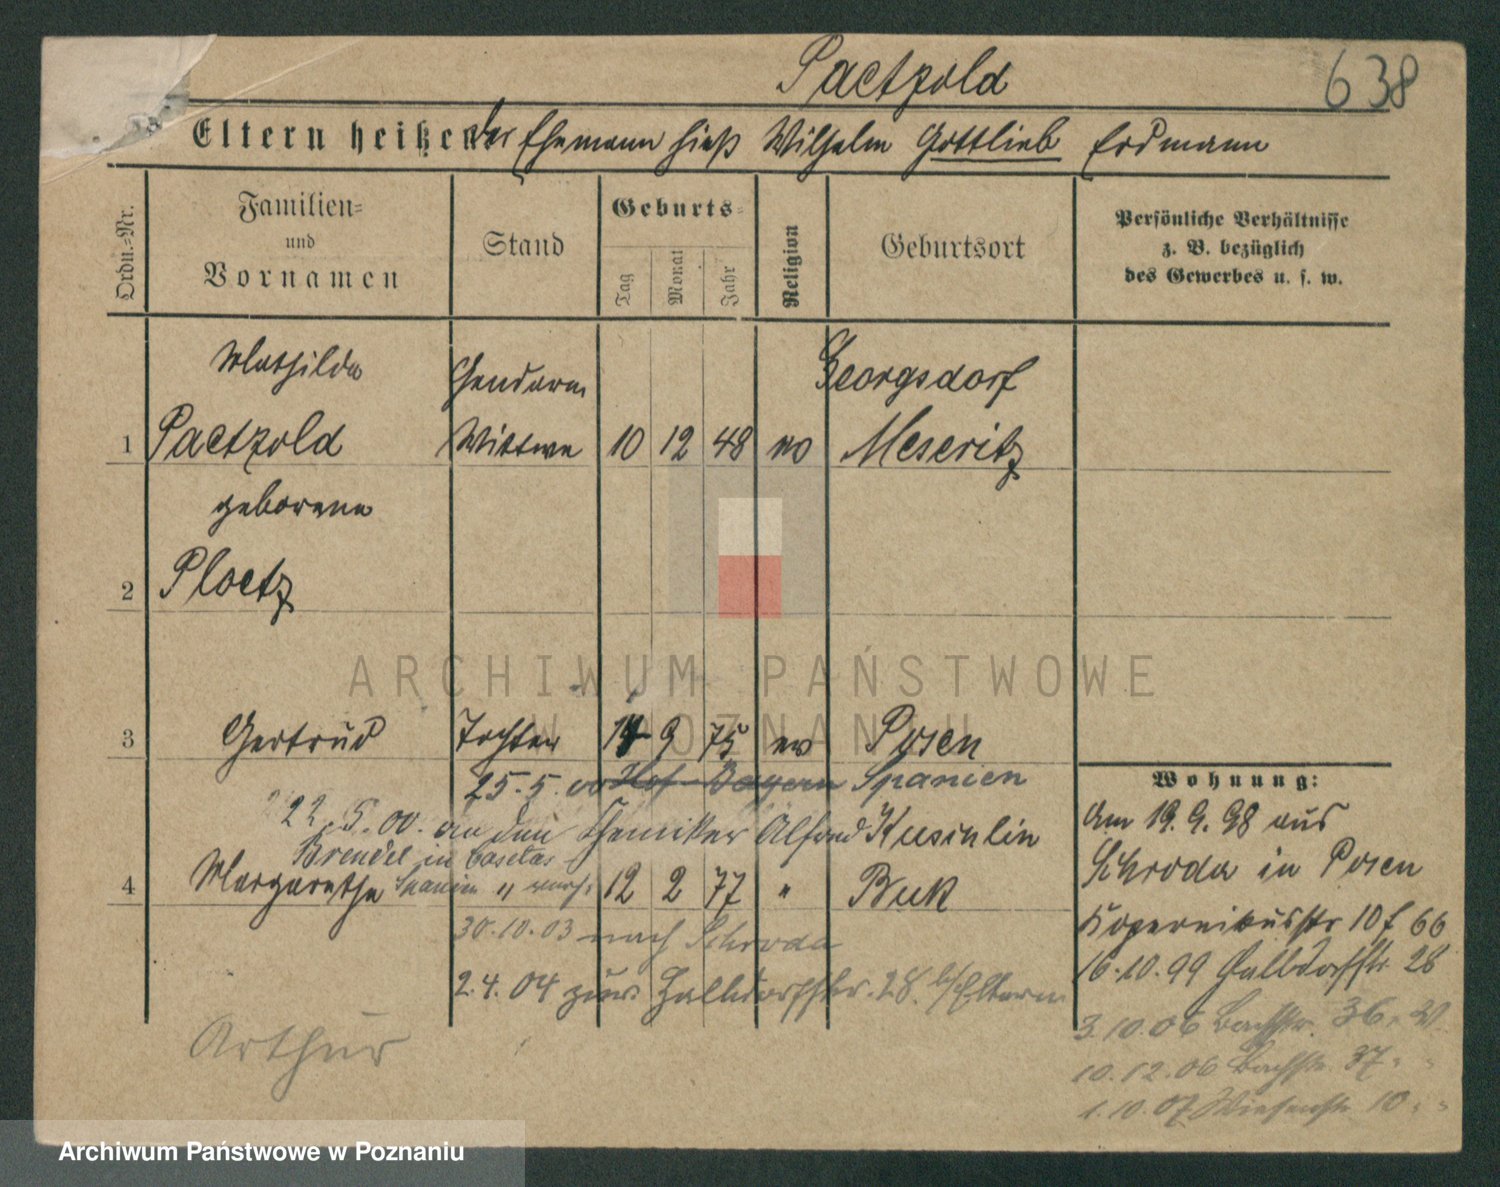 Paetzold
638
Eltern heißen der Ehemann hieß Wilhelm Gottlieb Erdmann
Ordn.=Nr.
Familien=
und
Vornamen
Stand
Geburts=
Tag
Monat
Jahr
Religion
Geburtsort
Persönliche Verhältnisse
z. B. bezüglich
des Gewerbes u. s. w.
Mathilde Gendarm Georgsdorf
1 Paetzold Wittwe 10 12 48 ev Meseritz
geborene
2 Ploetz
3 Gertrud Tochter 9 75 ev Posen
25.5.00 Hof Bayern Spanien
22.5.00. an den Chemiker Alfred
Brendel in
4 Margarethe Spanien 12 2 77 " Buk
30.10.03 nach Schroda
2.4.04 zur. Halbdorfstr. 28. b/Eltern
Arthur
Wohnung:
Am 19.9.98 aus
Schroda in Posen
Kopernikusstr 10 f 66
16.10.99 Halbdorfstr 28
3.10.06 Bachstr. 36.
10.12.06 Bachstr. 37 "
1.10.07 Wiesenstr 10 "
ARCHIWUM PAŃSTWOWE
W POZNANIU
Archiwum Państwowe w Poznaniu